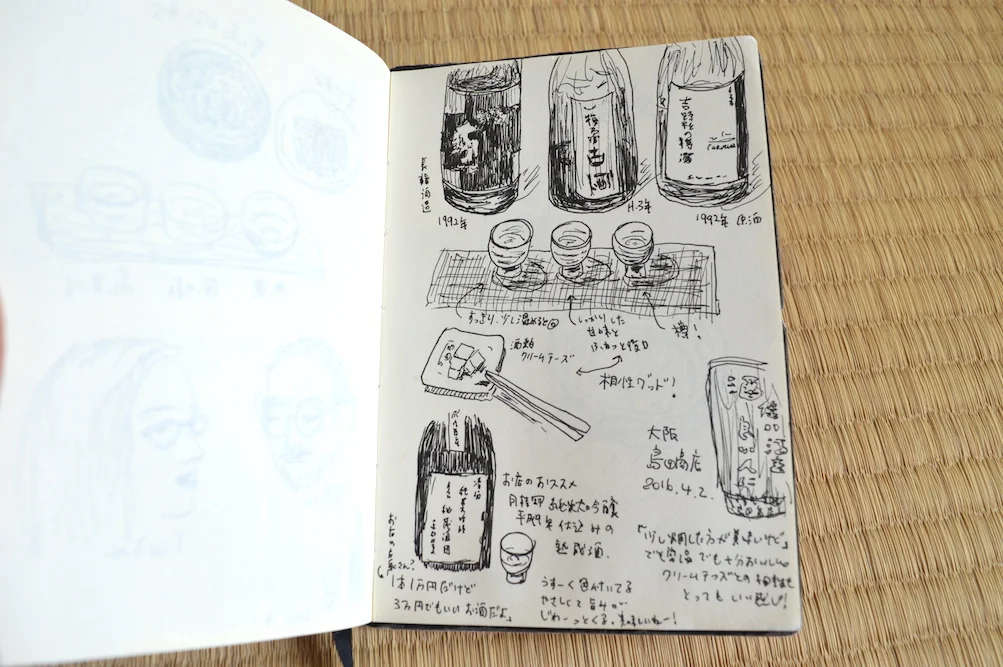 長龍酒造
1992年
古酒
H.3年
吉野杉の樽酒
1992年 原酒
すっきり、少し温めると
しっかりした
甘味と
樽!
酒粕
クリームチーズ
相性グッド!
大阪
島田商店
2016.4.2.
お店のおススメ
月桂冠 純米大吟醸
平成9年仕込みの
熟成酒.
清酒
純米大吟醸
1本1万円だけど
3万円でもいいお酒だよ」
うすーく色付いてる
やさしくて旨みが
じわーっとくる。美味しいねー!
「少し燗した方が美味いけど」
でも常温でも十分おいしい
クリームチーズとの相性も
とってもいい感じ!